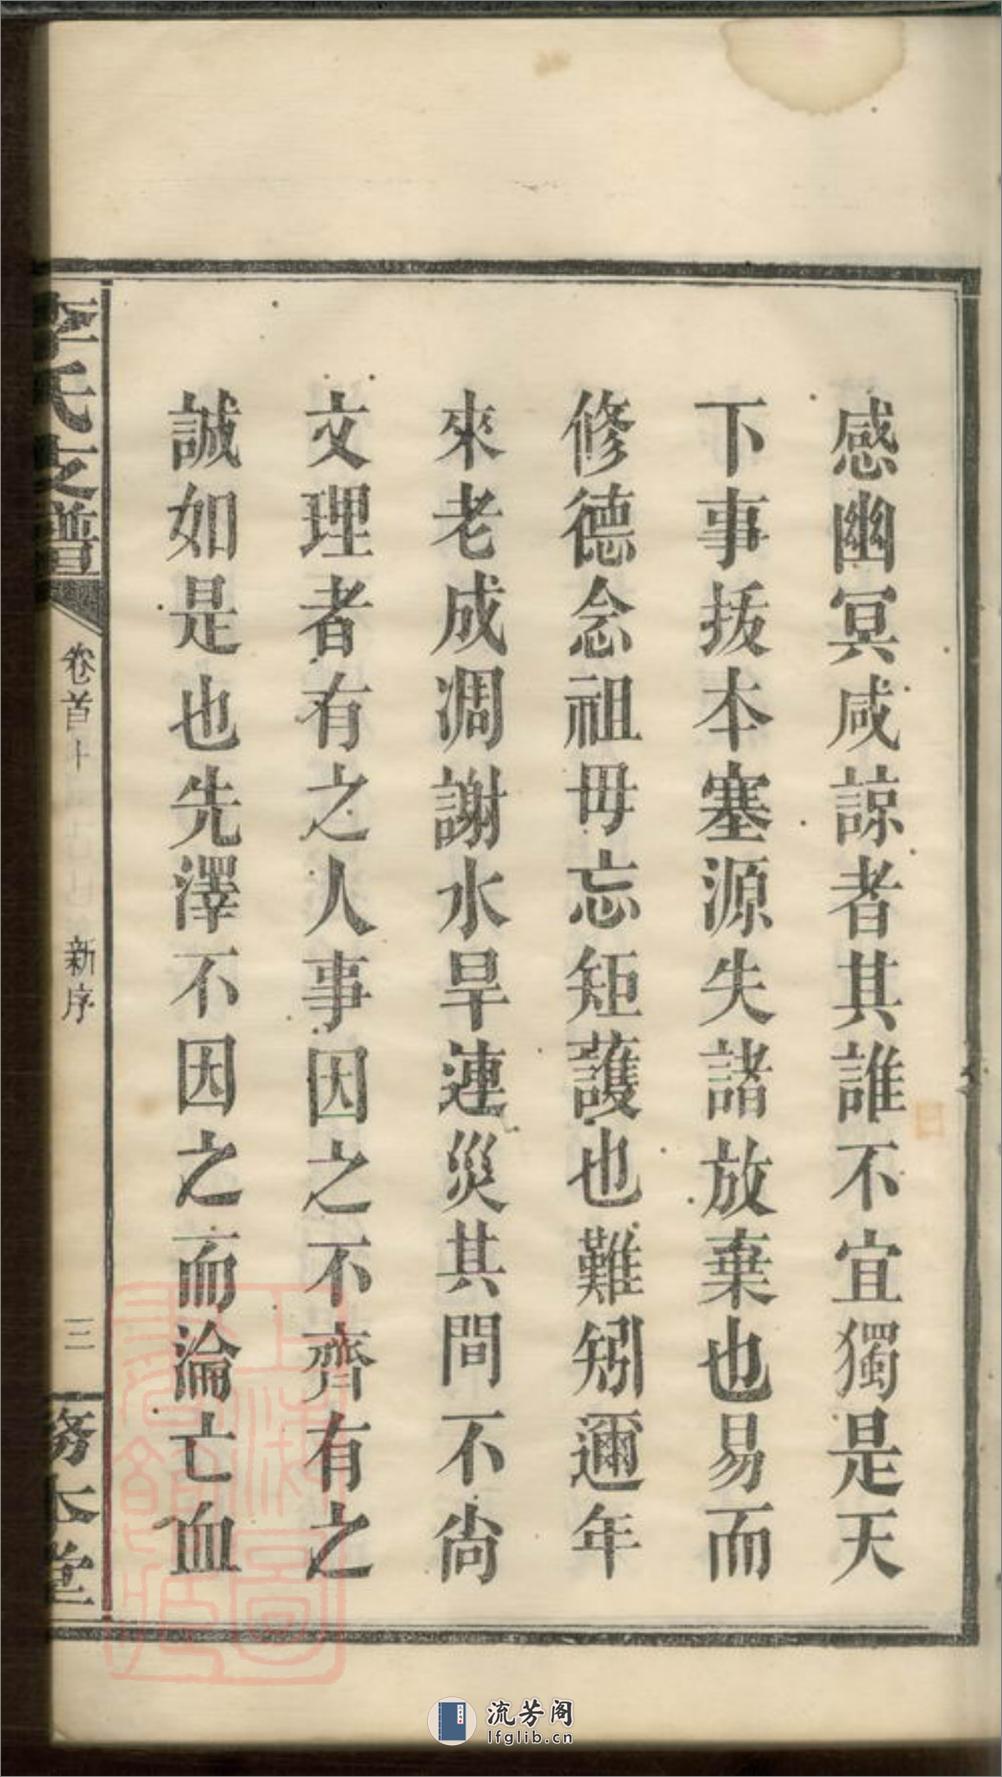 感幽冥咸諒者其誰不宜獨是天
下事拔本塞源失諸放棄也易而
修德念祖毋忘矩護也難矧邇年
來老成凋謝水旱連災其間不尙
文理者有之人事因之不齊有之
誠如是也先澤不因之而淪亡血
李氏支譜
卷首上
新序
三
務本堂
流芳阁
lfglib.cn